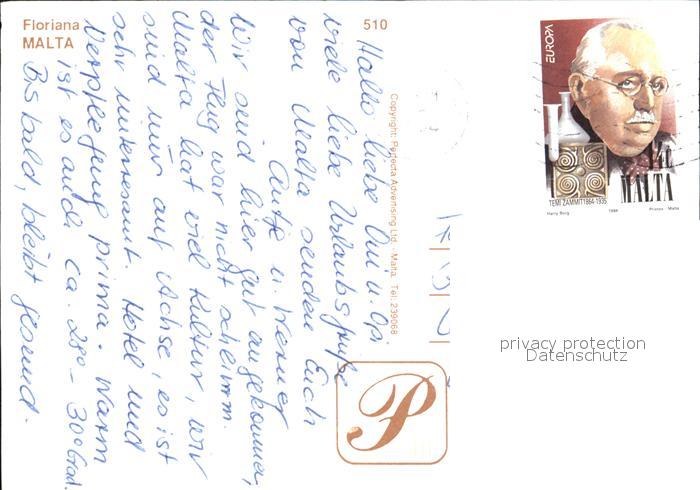 Floriana
MALTA
510
Hallo liebe Omi u. Opi.
Viele liebe Urlaubsgrüße
von Malta senden Euch
Antje u. Werner
Wir sind hier gut angekommen,
der Flug war nicht schlimm.
Malta hat viel Kultur, wir
sind nur auf Achse, es ist
sehr interessant. Hotel und
Verpflegung prima. Warm
ist es auch ca. 280 - 30° Grad.
Bis bald, bleibt gesund.
Copyright: Perfecta Advertising Ltd. - Malta. Tel: 239068
P
EUROPA
14c
MALTA
TEMI ZAMMIT 1864-1935
Harry Borg
1994
Printex - Malta
privacy protection
Datenschutz